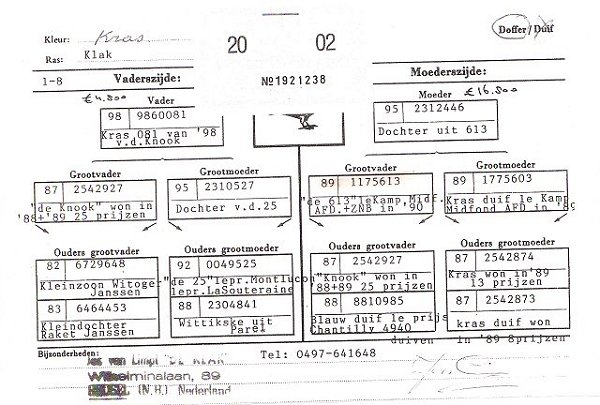 Kleur: Kras
Ras: Klak
20 02
Doffer/Duif
1-8 Vaderszijde: №1921238 Moederszijde:
€ 4.800 Vader
98 9860081
Kras 081 van '98
v.d.Knook
Moeder € 16.800
95 2312446
Dochter uit 613
Grootvader
87 2542927
"de Knook" won in
'88+'89 25 prijzen
Grootmoeder
95 2310527
Dochter v.d.25
Grootvader
89 1175613
"de 613"leKamp,Midf.
AFD.+ZNB in '90
Grootmoeder
89 1775603
Kras duif le Kamp
Midfond AFD in '89
Ouders grootvader
82 6729648
Kleinzoon Witoger
Janssen
83 6464453
Kleindochter
Raket Janssen
Ouders grootmoeder
92 0049525
"de 25"lepr.Montlucon
lepr.LaSouteraine
88 2304841
Wittikske uit
Parel
Ouders grootvader
87 2542927
"Knook" won in
'88+89 25 prijzen
88 8810985
Blauw duif le prijs
Chantilly 4940
duiven
Ouders grootmoeder
87 2542874
Kras won in'89
13 prijzen
87 2542873
kras duif won
in '89 8prijzen
Bijzonderheden:
Jos van Limpt "DE KLAK"
Wilhelminalaan, 89
(N.B.) Nederland
Tel: 0497-641648